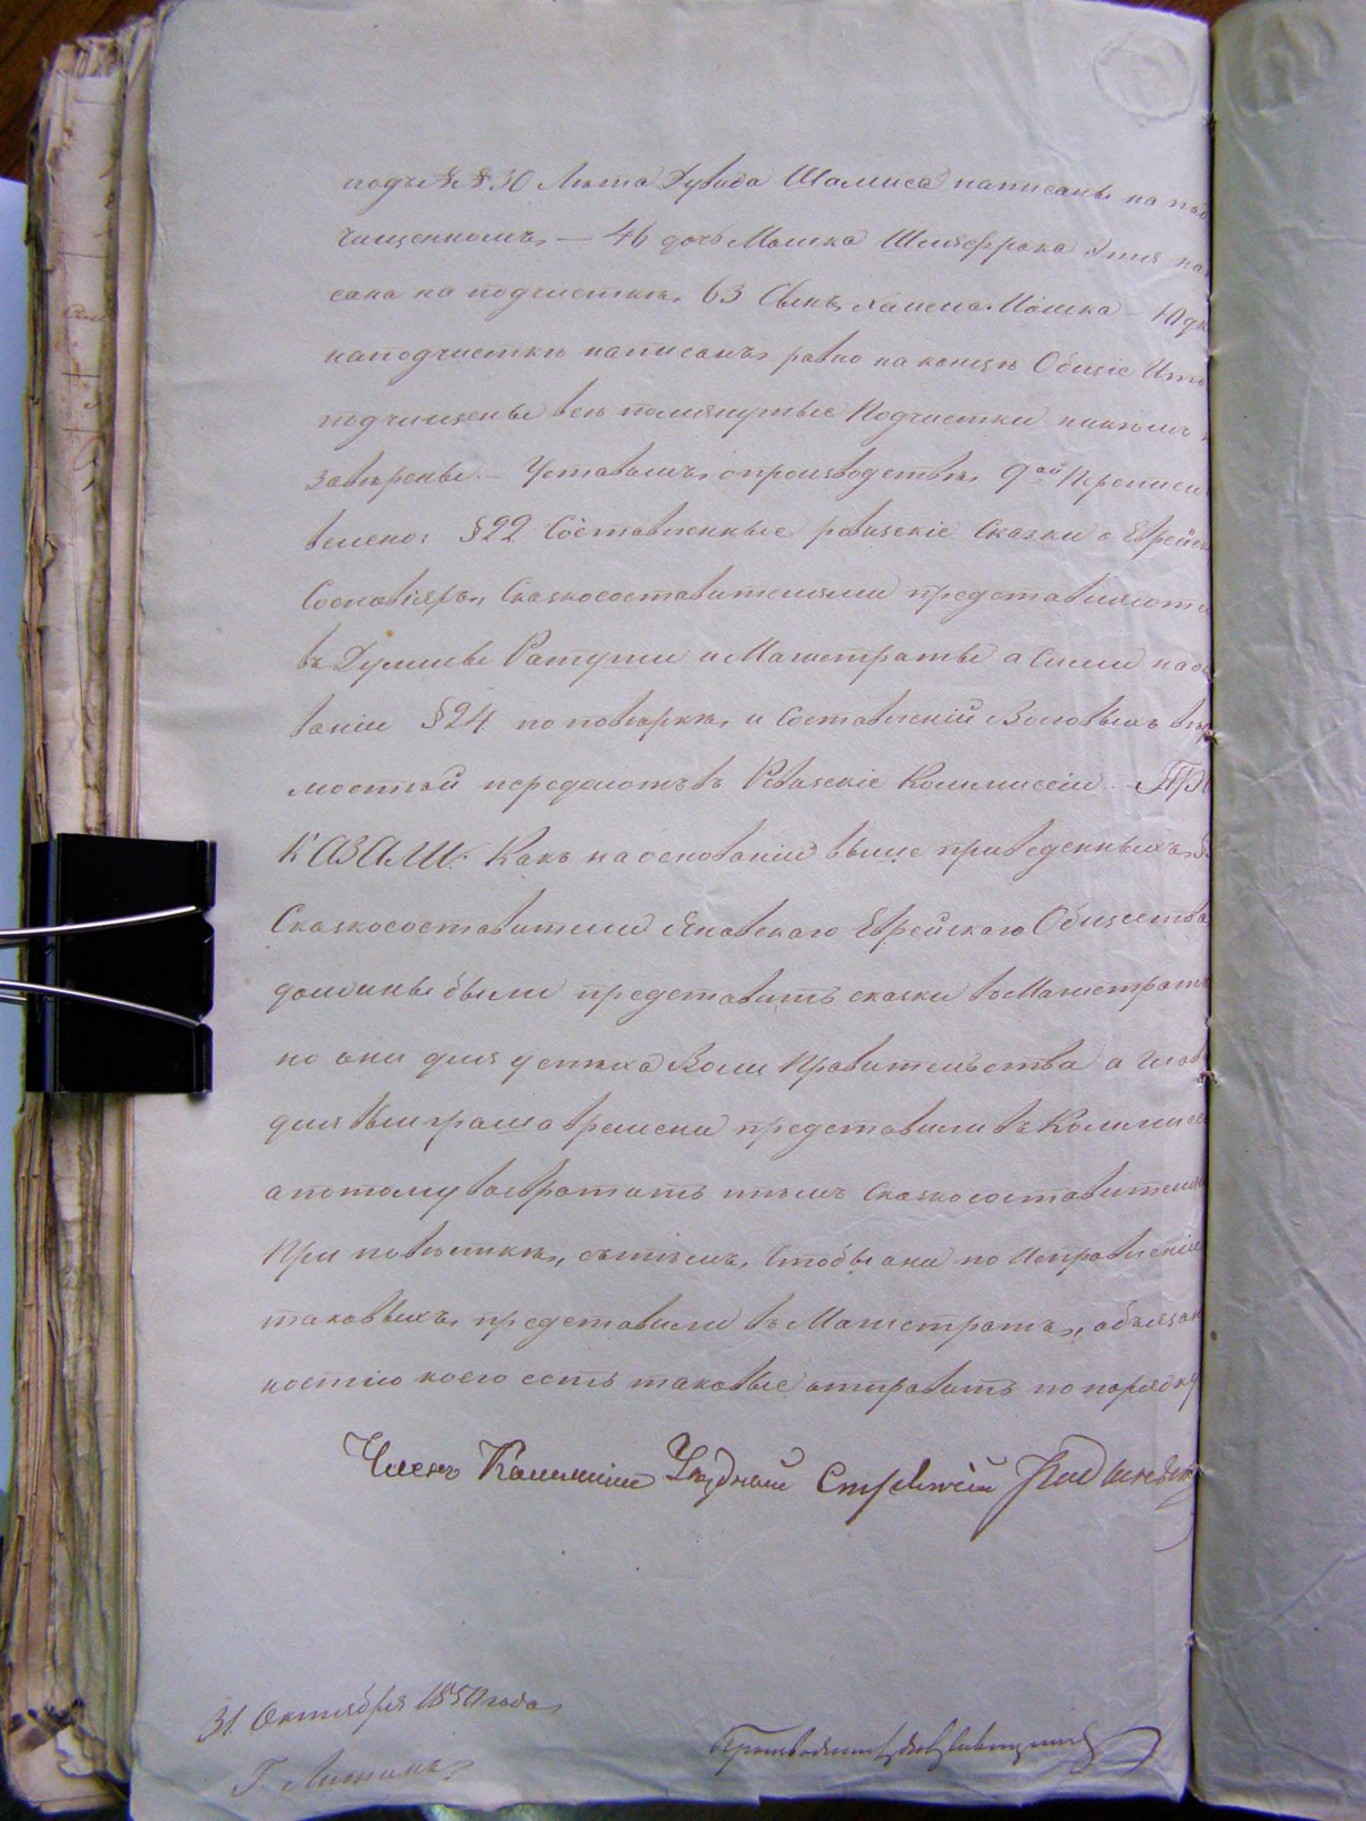 подъ №№ 30 Лета Дувида Шамиса написаны на под
чищенномъ, — 46 дочь Мошка Шмеррока Этля на
сана на подчистке, 63 Сынъ Хаима Мошка Юд
на подчистке написанъ, равно на конце Общіе Ито
подчищены все помянутые Подчистки никемъ н
заверены. — Уставомъ о производстве 9ой Переписи
велено: §22 Составленные ревизскіе Сказки о Евре
Сословіяхъ, Сказкосоставителями представляютс
въ Думы Ратуши и Магистраты а Сими на ос
ваніи §24 по поверке и Составленій Валовыхъ ве
мостей передаютъ въ Ревизскіе Коммиссіи. — ПРИ
КАЗАЛИ: Какъ на основаніи выше приведенныхъ §
Сказкосоставители Яновскаго Еврейскаго Общества
должны были представить сказки въ Магистратъ
но они для успеха Воли Правительства а
для выиграша времени представили въ Коммисс
а потому возвратить имъ Сказкосоставител
При повестке, съ темъ, чтобы они по Исправленіи
таковыхъ, представили въ Магистратъ, обязан
ностію коего есть таковые отправить по порядку
Членъ Коммиссіи Уездный Стряпчій
31 Октября 1850 года
Г. Литинъ